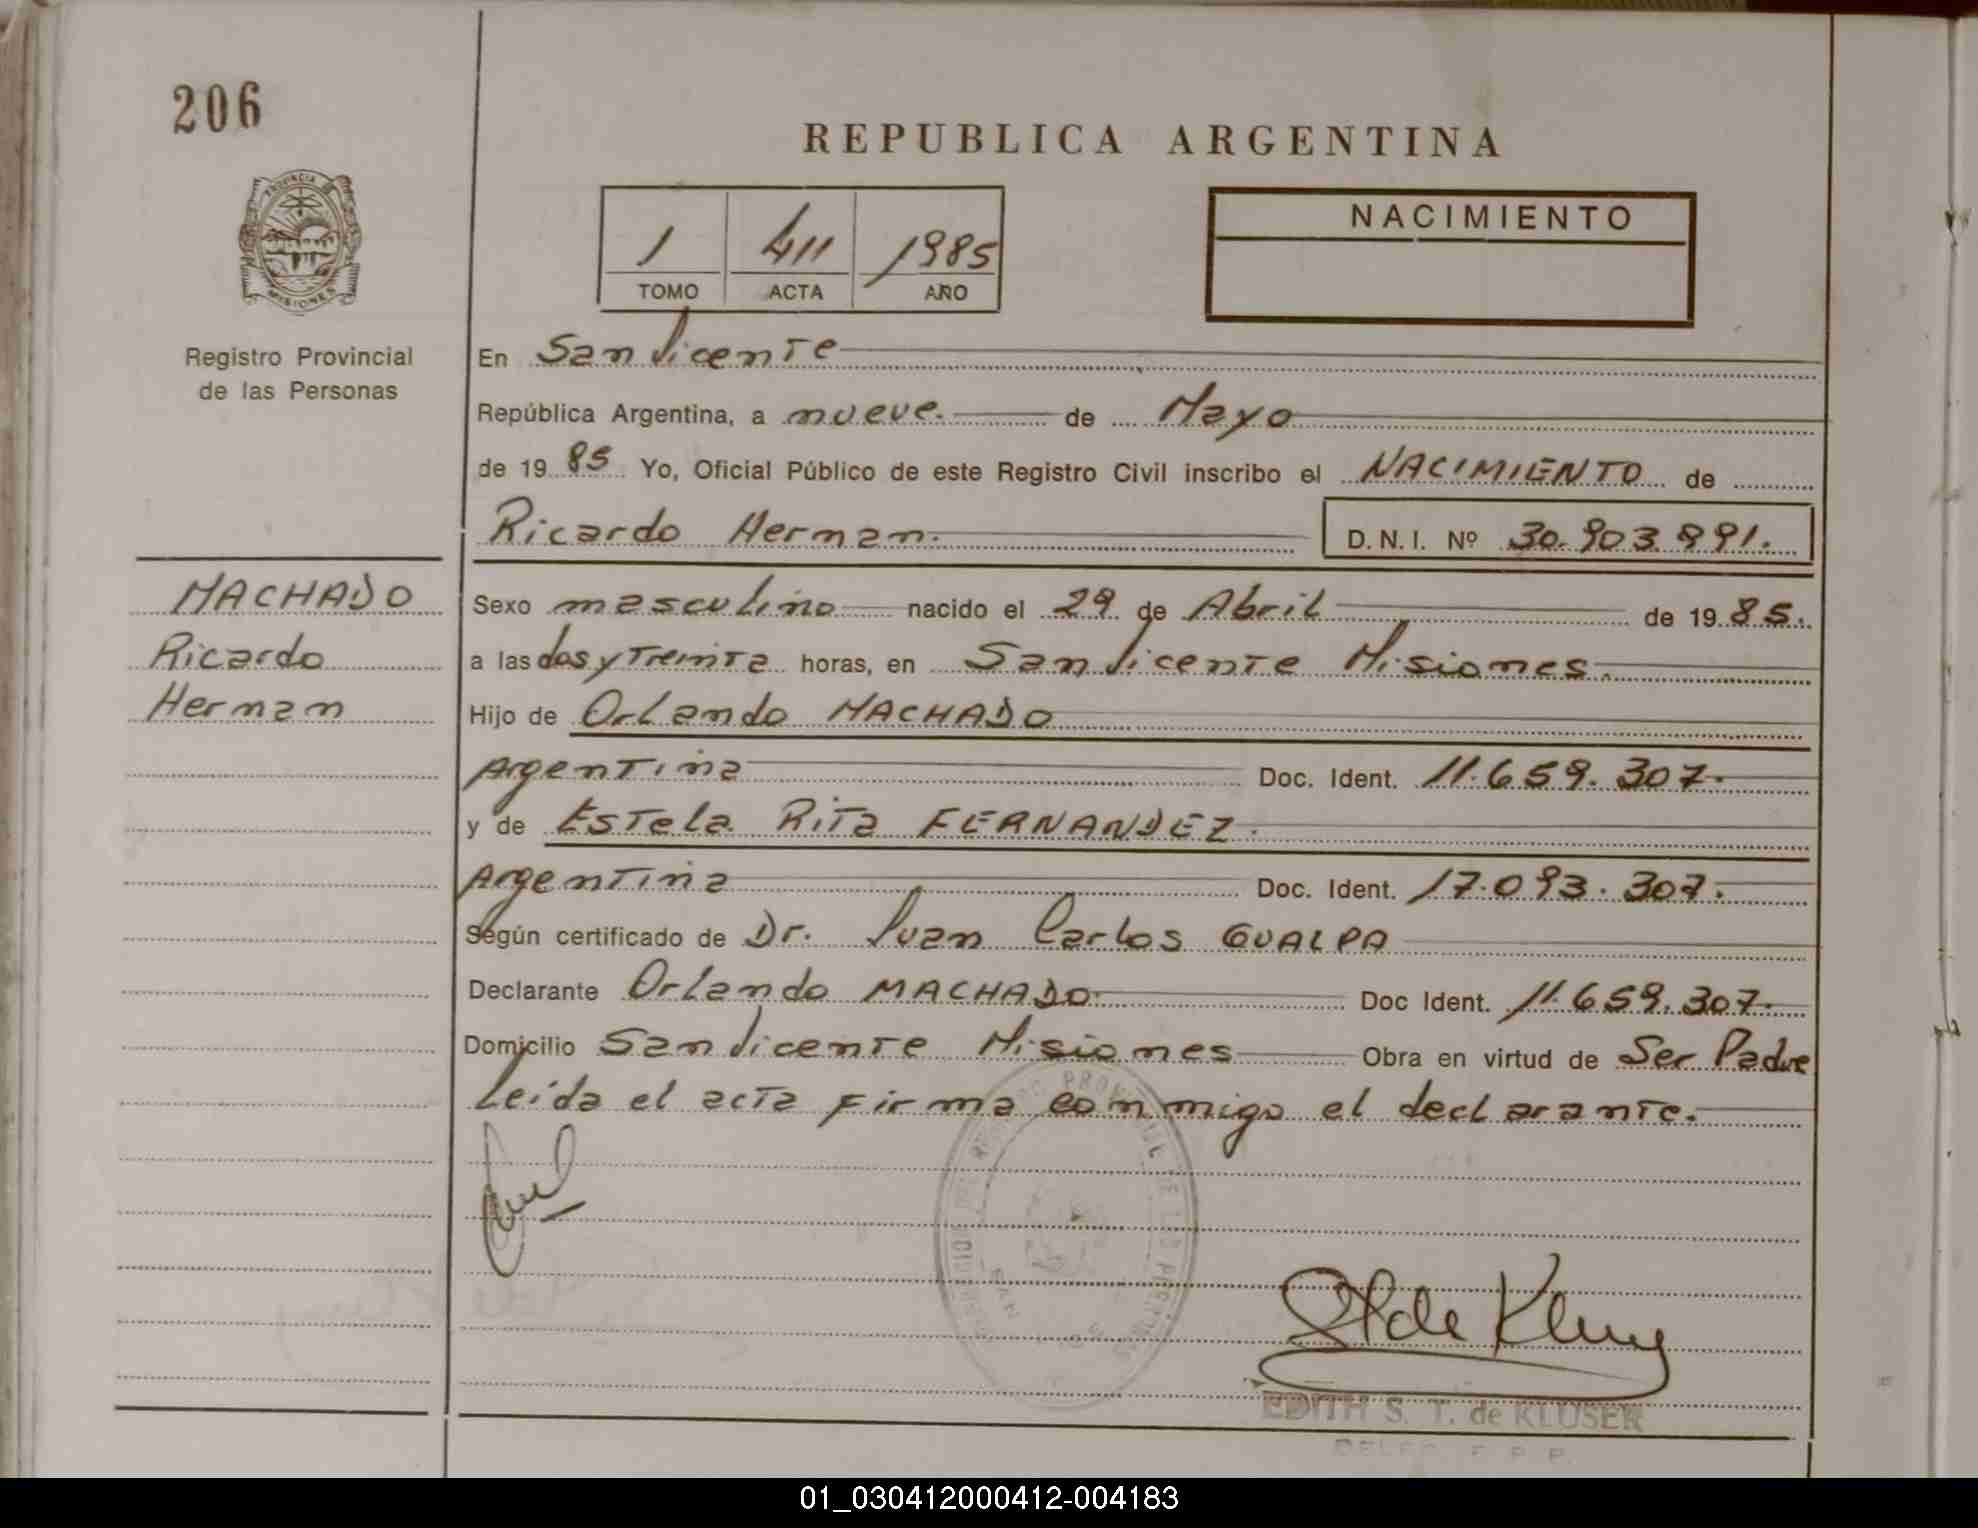 206
REPUBLICA ARGENTINA
PROVINCIA DE
MISIONES
Registro Provincial
de las Personas
1 411 1985
TOMO ACTA AÑO
NACIMIENTO
En San Vicente
República Argentina, a nueve. de Mayo
de 19 85 Yo, Oficial Público de este Registro Civil inscribo el NACIMIENTO de
Ricardo Hernan. D.N.I. Nº 30.903.891.
MACHADO
Ricardo
Hernan
Sexo masculino nacido el 29 de Abril de 19 85.
a las dos y treinta horas, en San Vicente Misiones.
Hijo de Orlando MACHADO
Argentina Doc. Ident. 11.659.307.
y de Estela Rita FERNANDEZ.
Argentina Doc. Ident. 17.093.307.
Según certificado de Dr. Juan Carlos GUALPA
Declarante Orlando MACHADO. Doc Ident. 11.659.307.
Domicilio San Vicente Misiones Obra en virtud de Ser Padre
Leida el acta firma conmigo el declarante.
EDITH S. T. de KLUSER
01_030412000412-004183